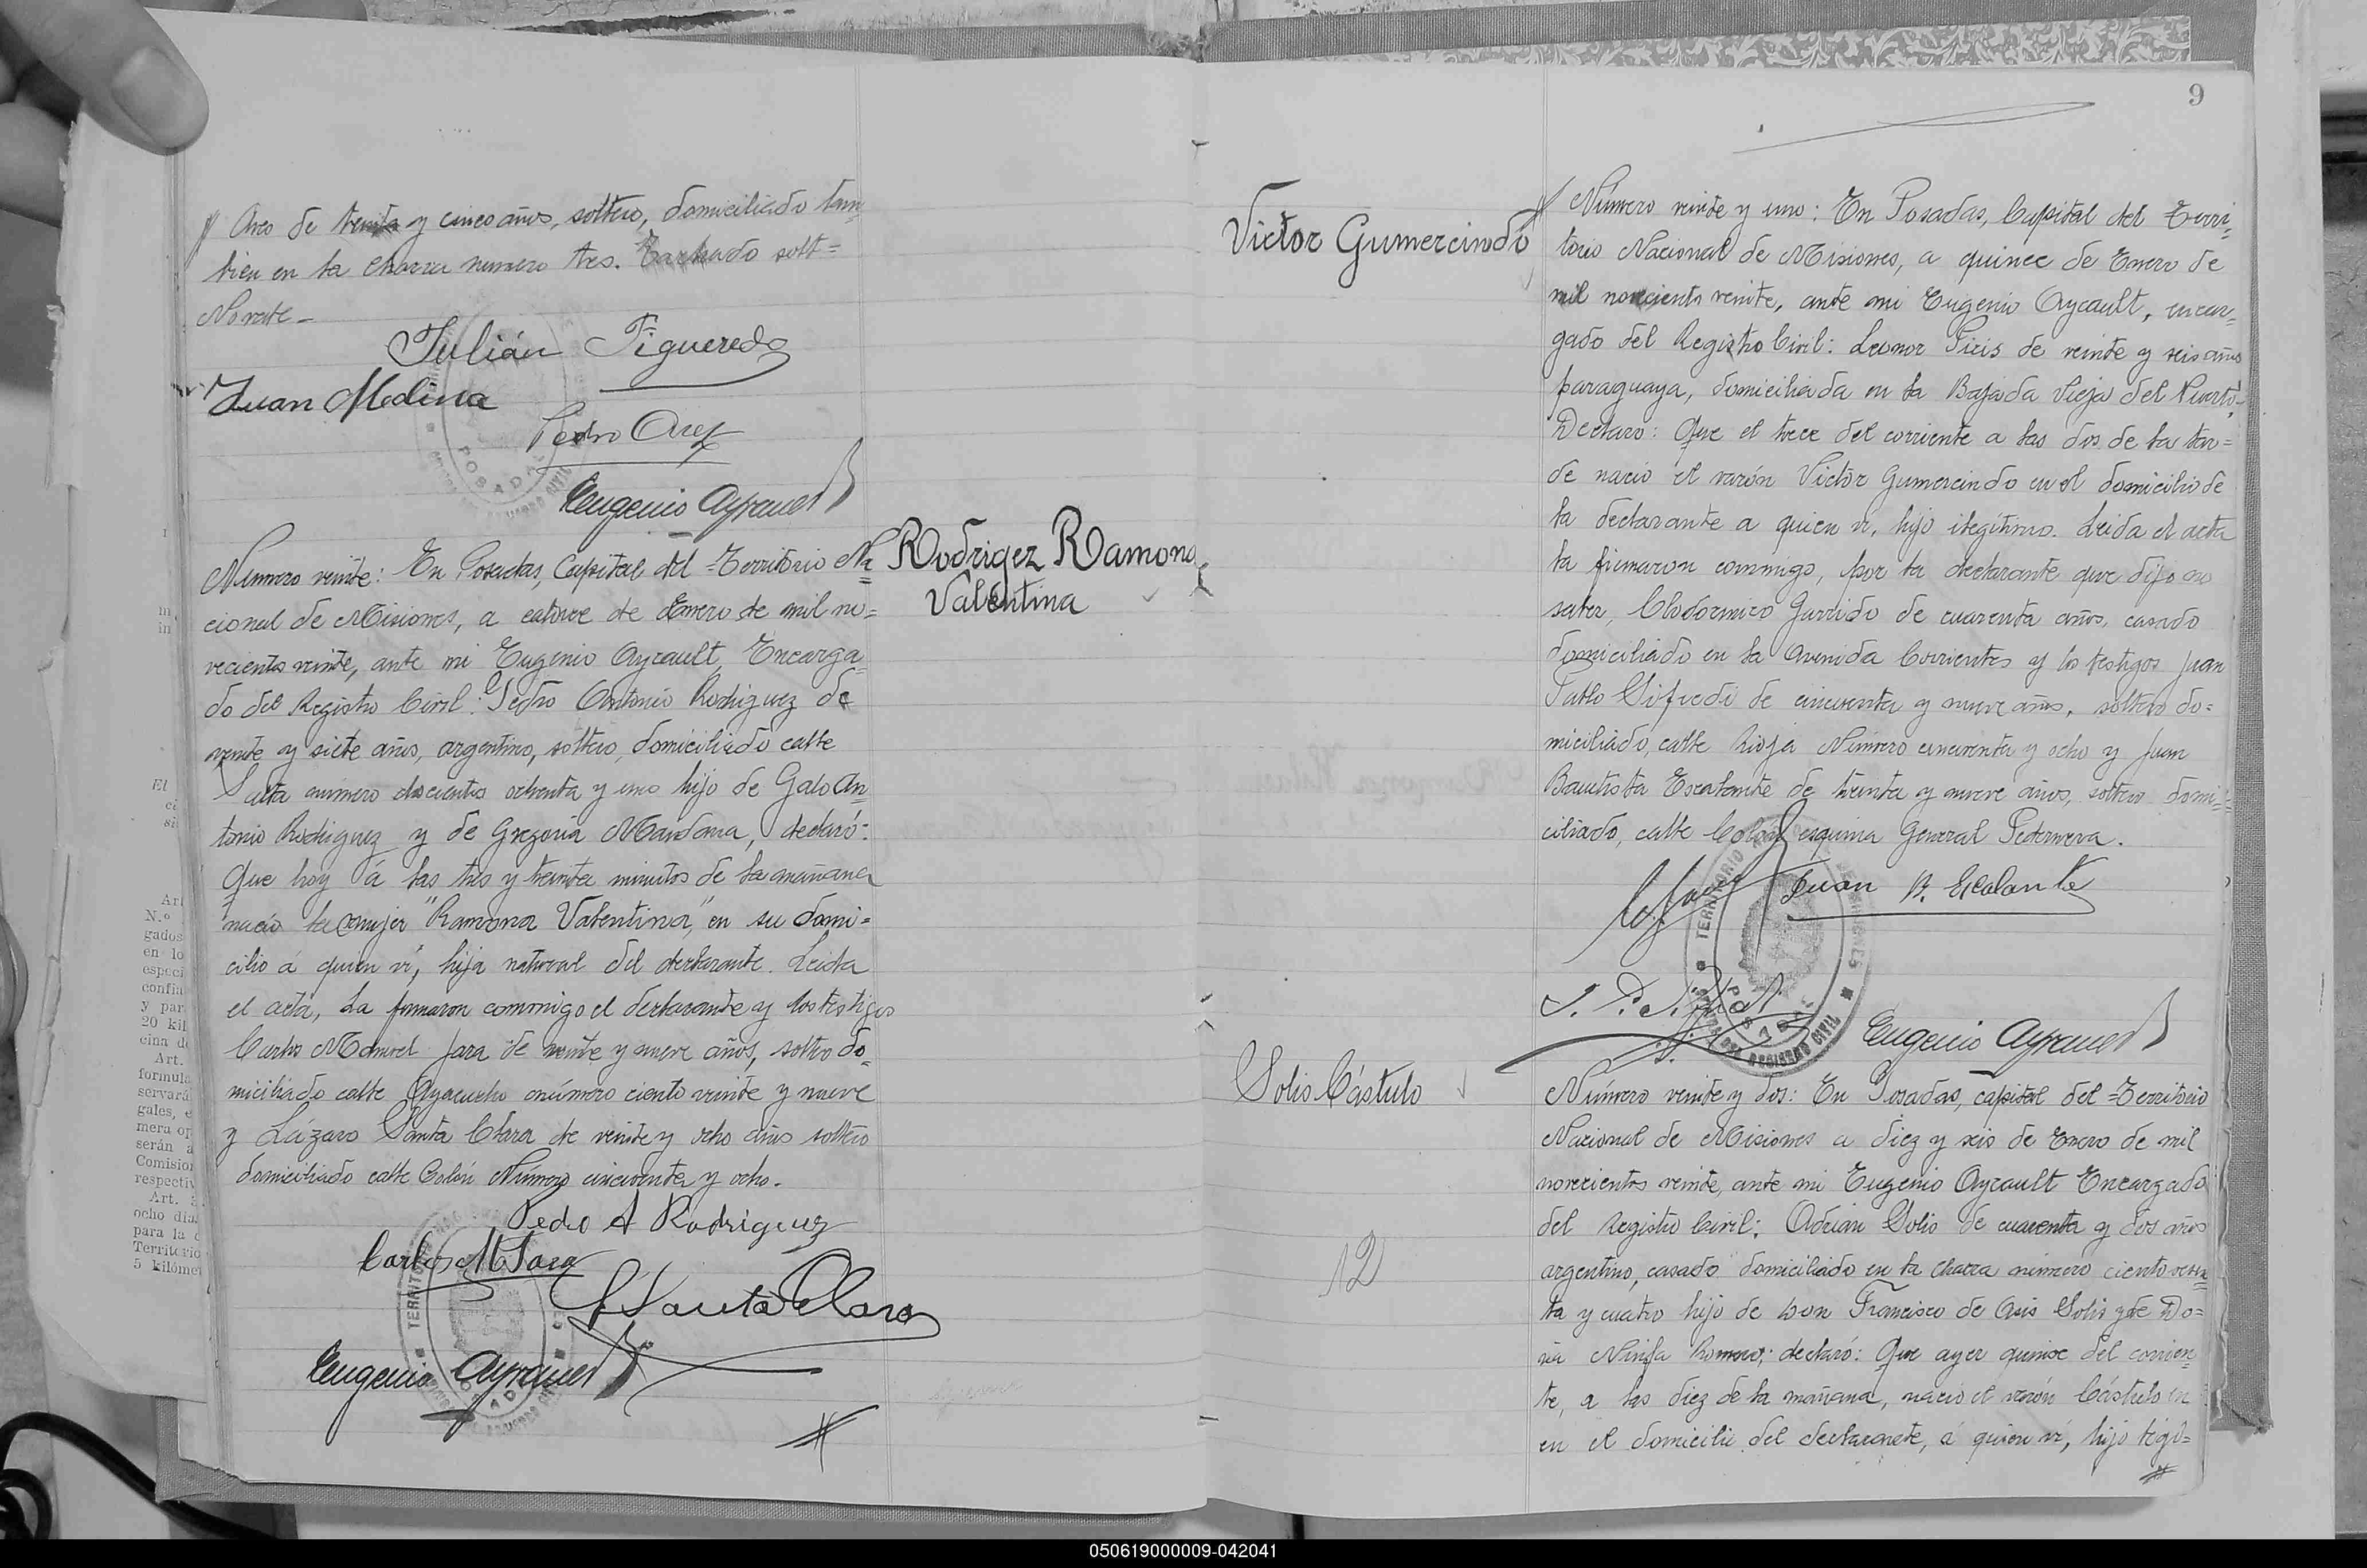 Arco de treinta y cinco años, soltero, domiciliado tam
bien en la Chacra numero tres. Tachado solt=
No vale-
Julián Figueredo
Juan Medina
Pedro
Eugenio Ayrault
Número veinte: En Posadas, Capital del Territorio Na=
cional de Misiones, a catorce de Enero de mil no=
vecientos veinte, ante mi Eugenio Ayrault, Encarga
do del Registro Civil: Pedro Antonio Rodriguez de
veinte y siete años, argentino, soltero, domiciliado calle
Salta número doscientos ochenta y uno hijo de Galo An
tonio Rodriguez y de Gregoria declaró:
Que hoy á las tres y treinta minutos de la mañana
nació la mujer "Ramona Valentina," en su domi=
cilio á quien ví, hija natural del declarante. Leida
el acta, La firmaron commigo el declarante y los testigos
Carlos Manuel Jara de veinte y nueve años, soltero do=
miciliado calle Ayacucho número ciento veinte y nueve
y Lázaro Santa Clara de veinte y ocho años soltero
domiciliado calle Colón Número cincuenta y ocho.
Pedro A Rodriguez
Carlos M Jara
L Santa Clara
Eugenio Ayrault
Rodrigez Ramona
Valentina
9
Victor Gumercindo
Número veinte y uno: En Posadas, Capital del Terri=
torio Nacional de Misiones, a quince de Enero de
mil novecientos veinte, ante mi Eugenio Ayrault, encar=
gado del Registro Civil: Leonor Piris de veinte y seis años
paraguaya, domiciliada en la Bajada Vieja del Puerto-
Declaro: Que el trece del corriente a las dos de la tar=
de nació el varón Victor Gumercindo en el domicilio de
la declarante a quien ví, hijo ilegítimo. Leida el acta
la firmaron commigo, por la declarante que dijo no
saber, Clodormiro Garrido de cuarenta años, casado
domiciliado en la Avenida Corrientes y los testigos Juan
Pablo Sifredi de cincuenta y nueve años, soltero do=
miciliado, calle Rioja Número cincuenta y ocho y Juan
Bautista Escalante de treinta y nueve años, soltero domi=
ciliado, calle Colón esquina General Pedernera.
Juan B. Escalante
Eugenio Ayrault
Solis Cástulo
12
Número veinte y dos: En Posadas, capital del Territorio
Nacional de Misiones a diez y seis de Enero de mil
novecientos veinte, ante mi Eugenio Ayrault Encargado
del Registro Civil: Adrian Solis de cuarenta y dos años
argentino, casado domiciliado en la Chacra número ciento sesen=
ta y cuatro hijo de Don Francisco de Asis Solis y de Do=
ña Ninfa Romero; declaró: Que ayer quince del corrien=
te, a las diez de la mañana, nació el varón Cástulo en
en el domicilio del declarante, á quien ví, hijo legí=
050619000009-042041